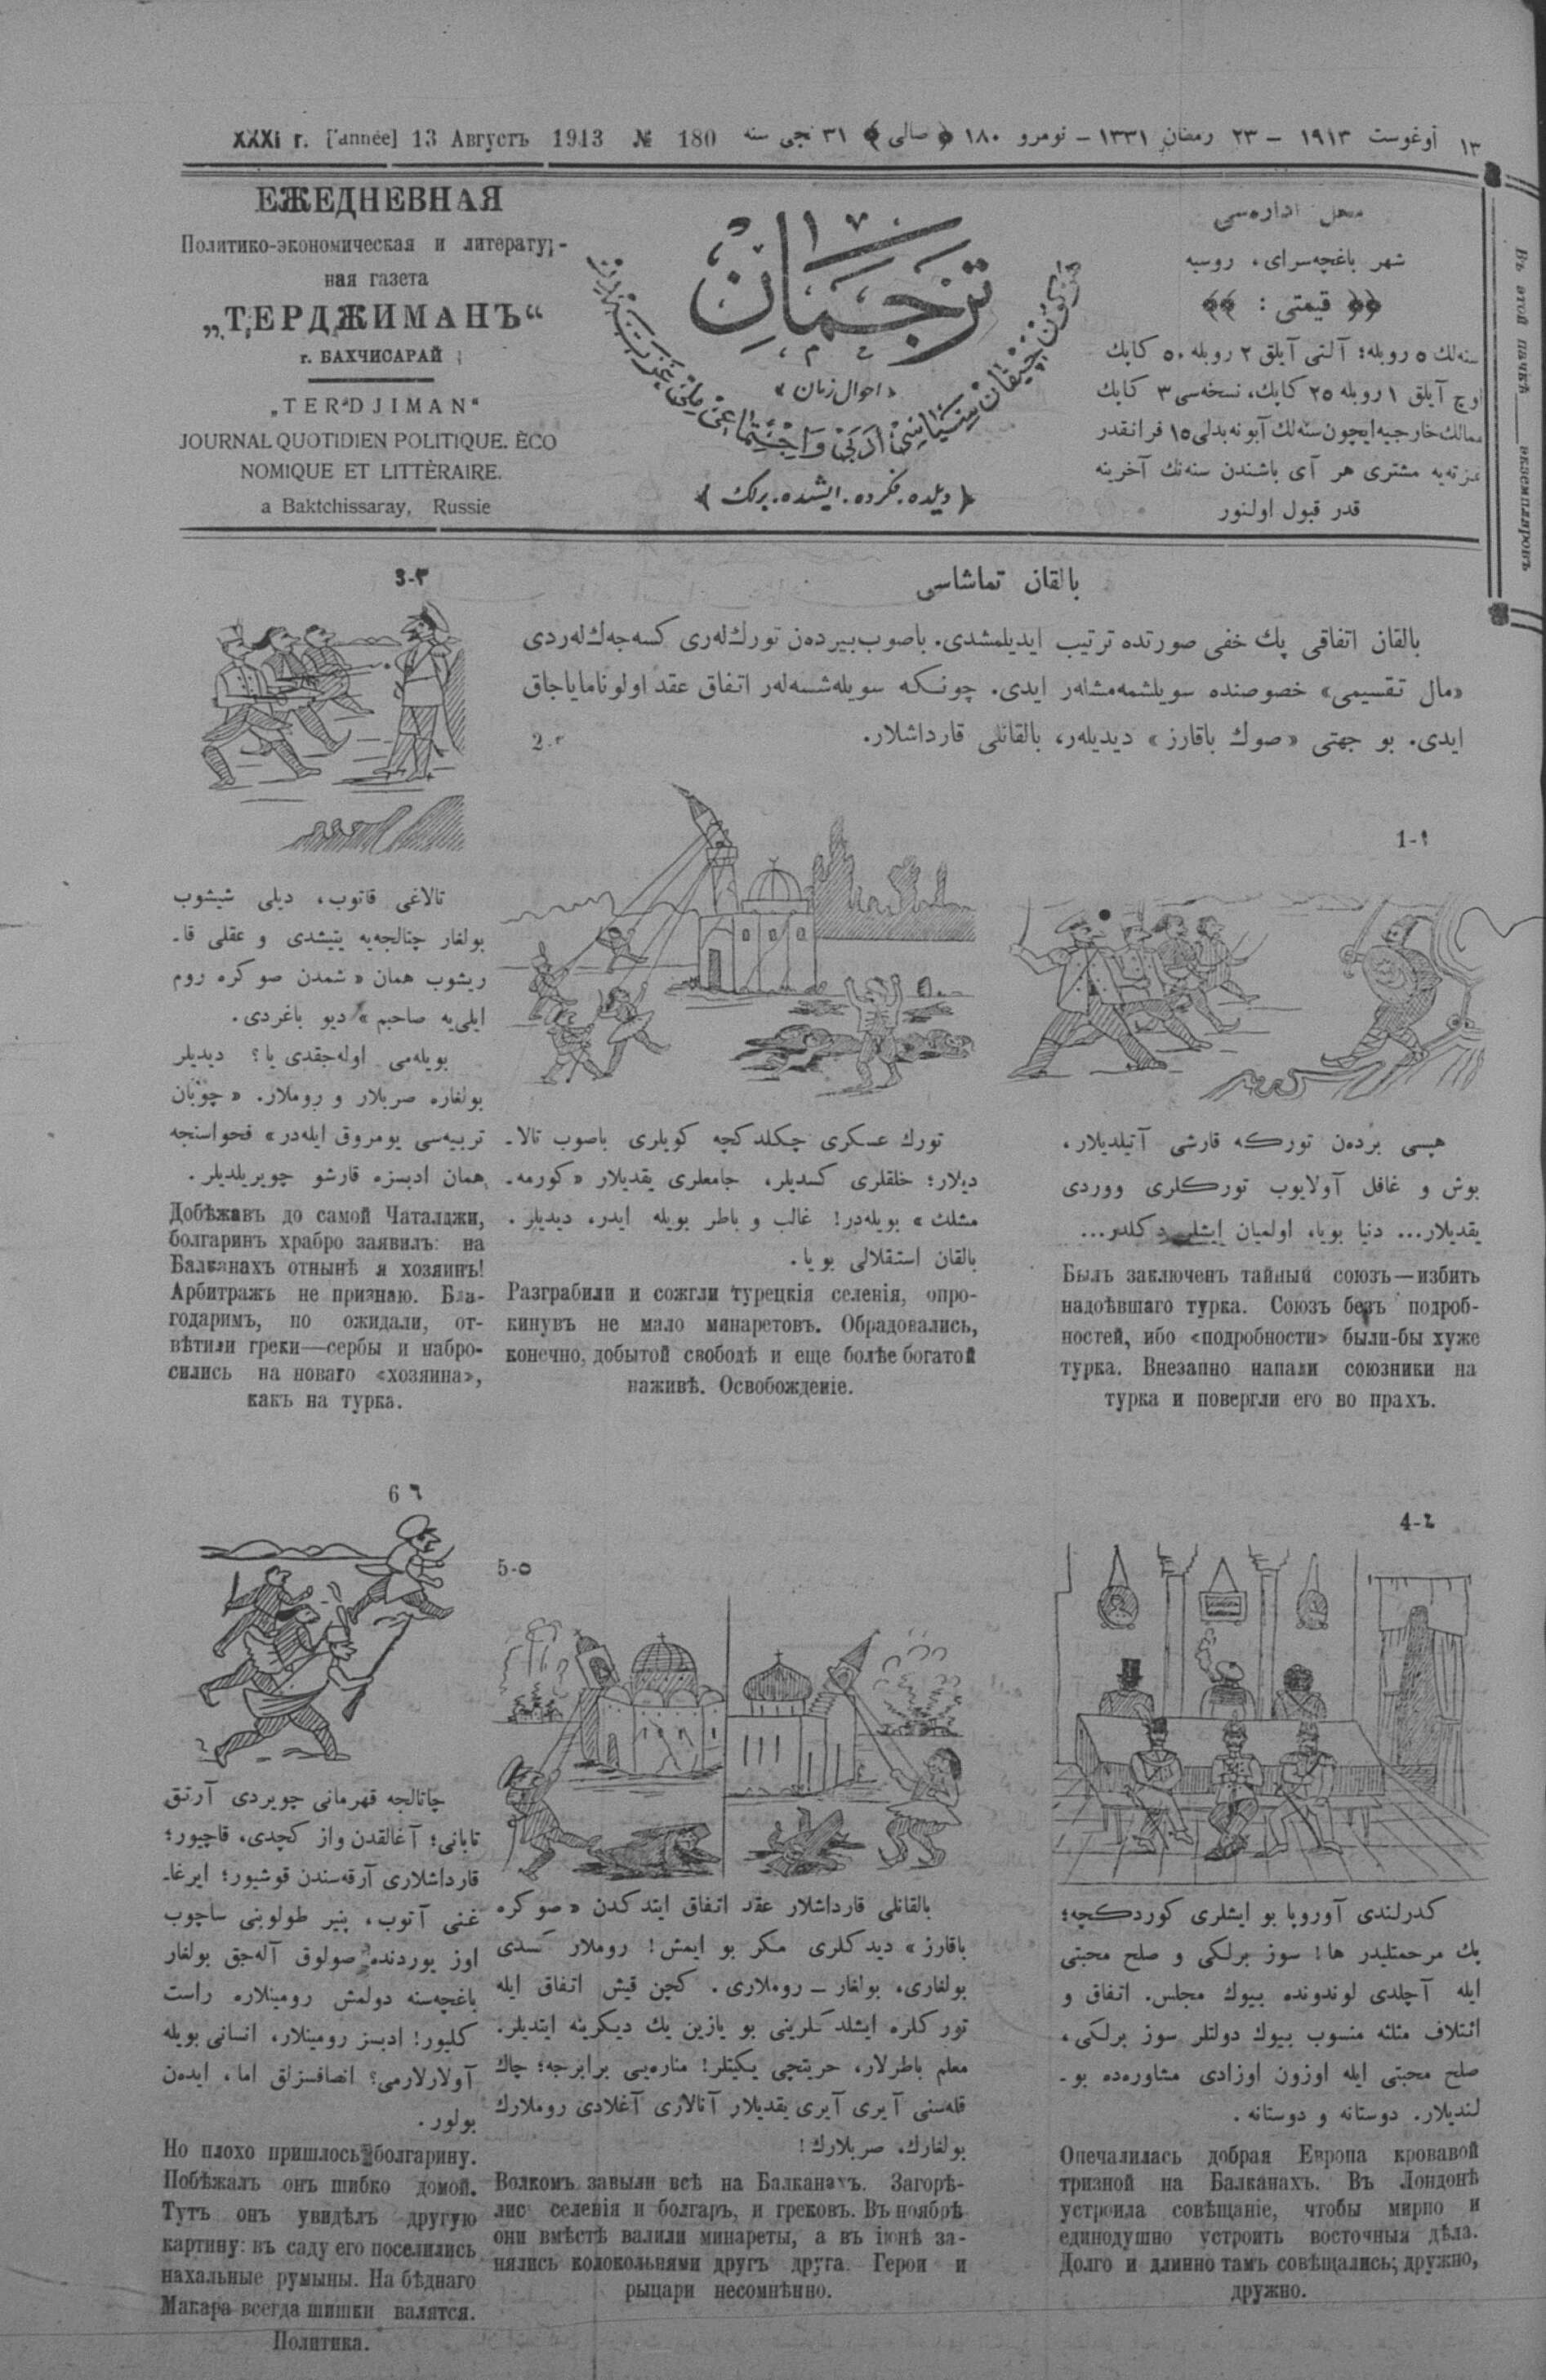 XXXI г. [année] 13 Августъ 1913 № 180
١٣ اوغوست ١٩١٣ – ٢٣ رمضان ١٣٣١ – نومرو ١٨٠ ﴿ صالی ﴾ ٣١ نجی سنه
ЕЖЕДНЕВНАЯ
Политико-экономическая и литератур-
ная газета
„ТЕРДЖИМАНЪ“
г. БАХЧИСАРАЙ
„TERDJIMAN“
JOURNAL QUOTIDIEN POLITIQUE. ÈCO
NOMIQUE ET LITTÈRAIRE.
a Baktchissaray, Russie
ترجمان
« احوال زمان »
﴿ ديلده. فكرده. ايشده. برلك ﴾
محل اداره‌سی
شهر باغچه‌سرای، روسیه
﴿﴿ قیمتی : ﴾﴾
سنه‌لك ٥ روبله؛ آلتی آیلق ٢ روبله ٥٠ كاپك
اوچ آیلق ١ روبله ٢٥ كاپك، نسخه‌سی ٣ كاپك
ممالك خارجیه ایچون سنه‌لك آبونه بدلی ١٥ فرانقدر
غزته‌یه مشتری هر آی باشندن سنه‌نك آخرینه
قدر قبول اولنور
Въ этой пачкѣ ــــ экземпляровъ
بالقان تماشاسی
بالقان اتفاقی پك خفی صورتده ترتیب ایدیلمشدی. باصوب بیردەن تورك‌لەری كسه‌جەك‌لەردی
«مال تقسیمی» خصوصنده سویلشمەمشلەر ایدی. چونكه سویلەشسەلەر اتفاق عقد اولونامایاجاق
ایدی. بو جهتی «صوك باقارز» دیدیلەر، بالقانلی قارداشلار.
1-١
هپسی بردەن توركه قارشی آتیلدیلار،
بوش و غافل آولایوب توركلری ووردی
یقدیلار... دنیا بویا، اولمیان ایشلر دكلدر...
Былъ заключенъ тайный союзъ—избить
надоѣвшаго турка. Союзъ безъ подроб-
ностей, ибо «подробности» были-бы хуже
турка. Внезапно напали союзники на
турка и повергли его во прахъ.
2-٢
تورك عسكری چكلدكچه كویلری باصوب تالا-
دیلار؛ خلقلری كسدیلر، جامعلری یقدیلار «كورمه-
مشلك» بویله‌در! غالب و باطر بویله ایدر، دیدیلر.
بالقان استقلالی بویا.
Разграбили и сожгли турецкія селенія, опро-
кинувъ не мало минаретовъ. Обрадовались,
конечно, добытой свободѣ и еще болѣе богатой
наживѣ. Освобожденіе.
3-٣
تالاغی قاتوب، دیلی شیشوب
بولغار چتالجه‌یه یتیشدی و عقلی قا-
ریشوب همان «شمدن صوكره روم
ایلی‌یه صاحبم» دیو باغردی.
بویله‌می اوله‌جقدی یا؟ دیدیلر
بولغاره صربلار و روملار. «چوبان
تربیه‌سی یومروق ایله‌در» فحواسنجه
همان ادبسزه قارشو چویریلدیلر.
Добѣжавъ до самой Чаталджи,
болгаринъ храбро заявилъ: на
Балканахъ отнынѣ я хозяинъ!
Арбитражъ не признаю. Бла-
годаримъ, но ожидали, от-
вѣтили греки—сербы и набро-
сились на новаго «хозяина»,
какъ на турка.
4-٤
كدرلندی آوروپا بو ایشلری كوردكچه؛
پك مرحمتلیدر ها! سوز برلكی و صلح محبتی
ایله آچلدی لوندونده بیوك مجلس. اتفاق و
ائتلاف مثلثه منسوب بیوك دولتلر سوز برلكی،
صلح محبتی ایله اوزون اوزادی مشاوره‌ده بو-
لندیلار. دوستانه و دوستانه.
Опечалилась добрая Европа кровавой
тризной на Балканахъ. Въ Лондонѣ
устроила совѣщаніе, чтобы мирно и
единодушно устроить восточныя дѣла.
Долго и длинно тамъ совѣщались; дружно,
дружно.
5-٥
بالقانلی قارداشلار عقد اتفاق ایتدكدن «صوكره
باقارز» دیدكلری مكر بو ایمش! روملار كسدی
بولغاری، بولغار – روملاری. كچن قیش اتفاق ایله
توركلره ایشلدكلرینی بو یازین یك دیكرینه ایتدیلر.
معلم باطرلار، حریتچی یكیتلر! مناره‌یی برابرجه؛ چاك
قله‌سنی آیری آیری یقدیلار آنالاری آغلادی روملارك
بولغارك، صربلارك!
Волкомъ завыли всѣ на Балканахъ. Загорѣ-
лис селенія и болгаръ, и грековъ. Въ ноябрѣ
они вмѣстѣ валили минареты, а въ іюнѣ за-
нялись колокольнями другъ друга. Герои и
рыцари несомнѣнно.
6 ٦
چاتالجه قهرمانی چویردی آرتق
تابانی؛ آغالقدن واز كچدی، قاچیور؛
قارداشلاری آرقه‌سندن قوشیور؛ ایرغا-
غنی آتوب، پنیر طولوبنی ساچوب
اوز یوردنده صولوق آله‌جق بولغار
باغچه‌سنه دولمش رومینلاره راست
كلیور! ادبسز رومینلار، انسانی بویله
آولارلارمی؟ انصافسزلق اما، ایدەن
بولور.
Но плохо пришлось болгарину.
Побѣжалъ онъ шибко домой.
Тутъ онъ увидѣлъ другую
картину: въ саду его поселились
нахальные румыны. На бѣднаго
Макара всегда шишки валятся.
Политика.